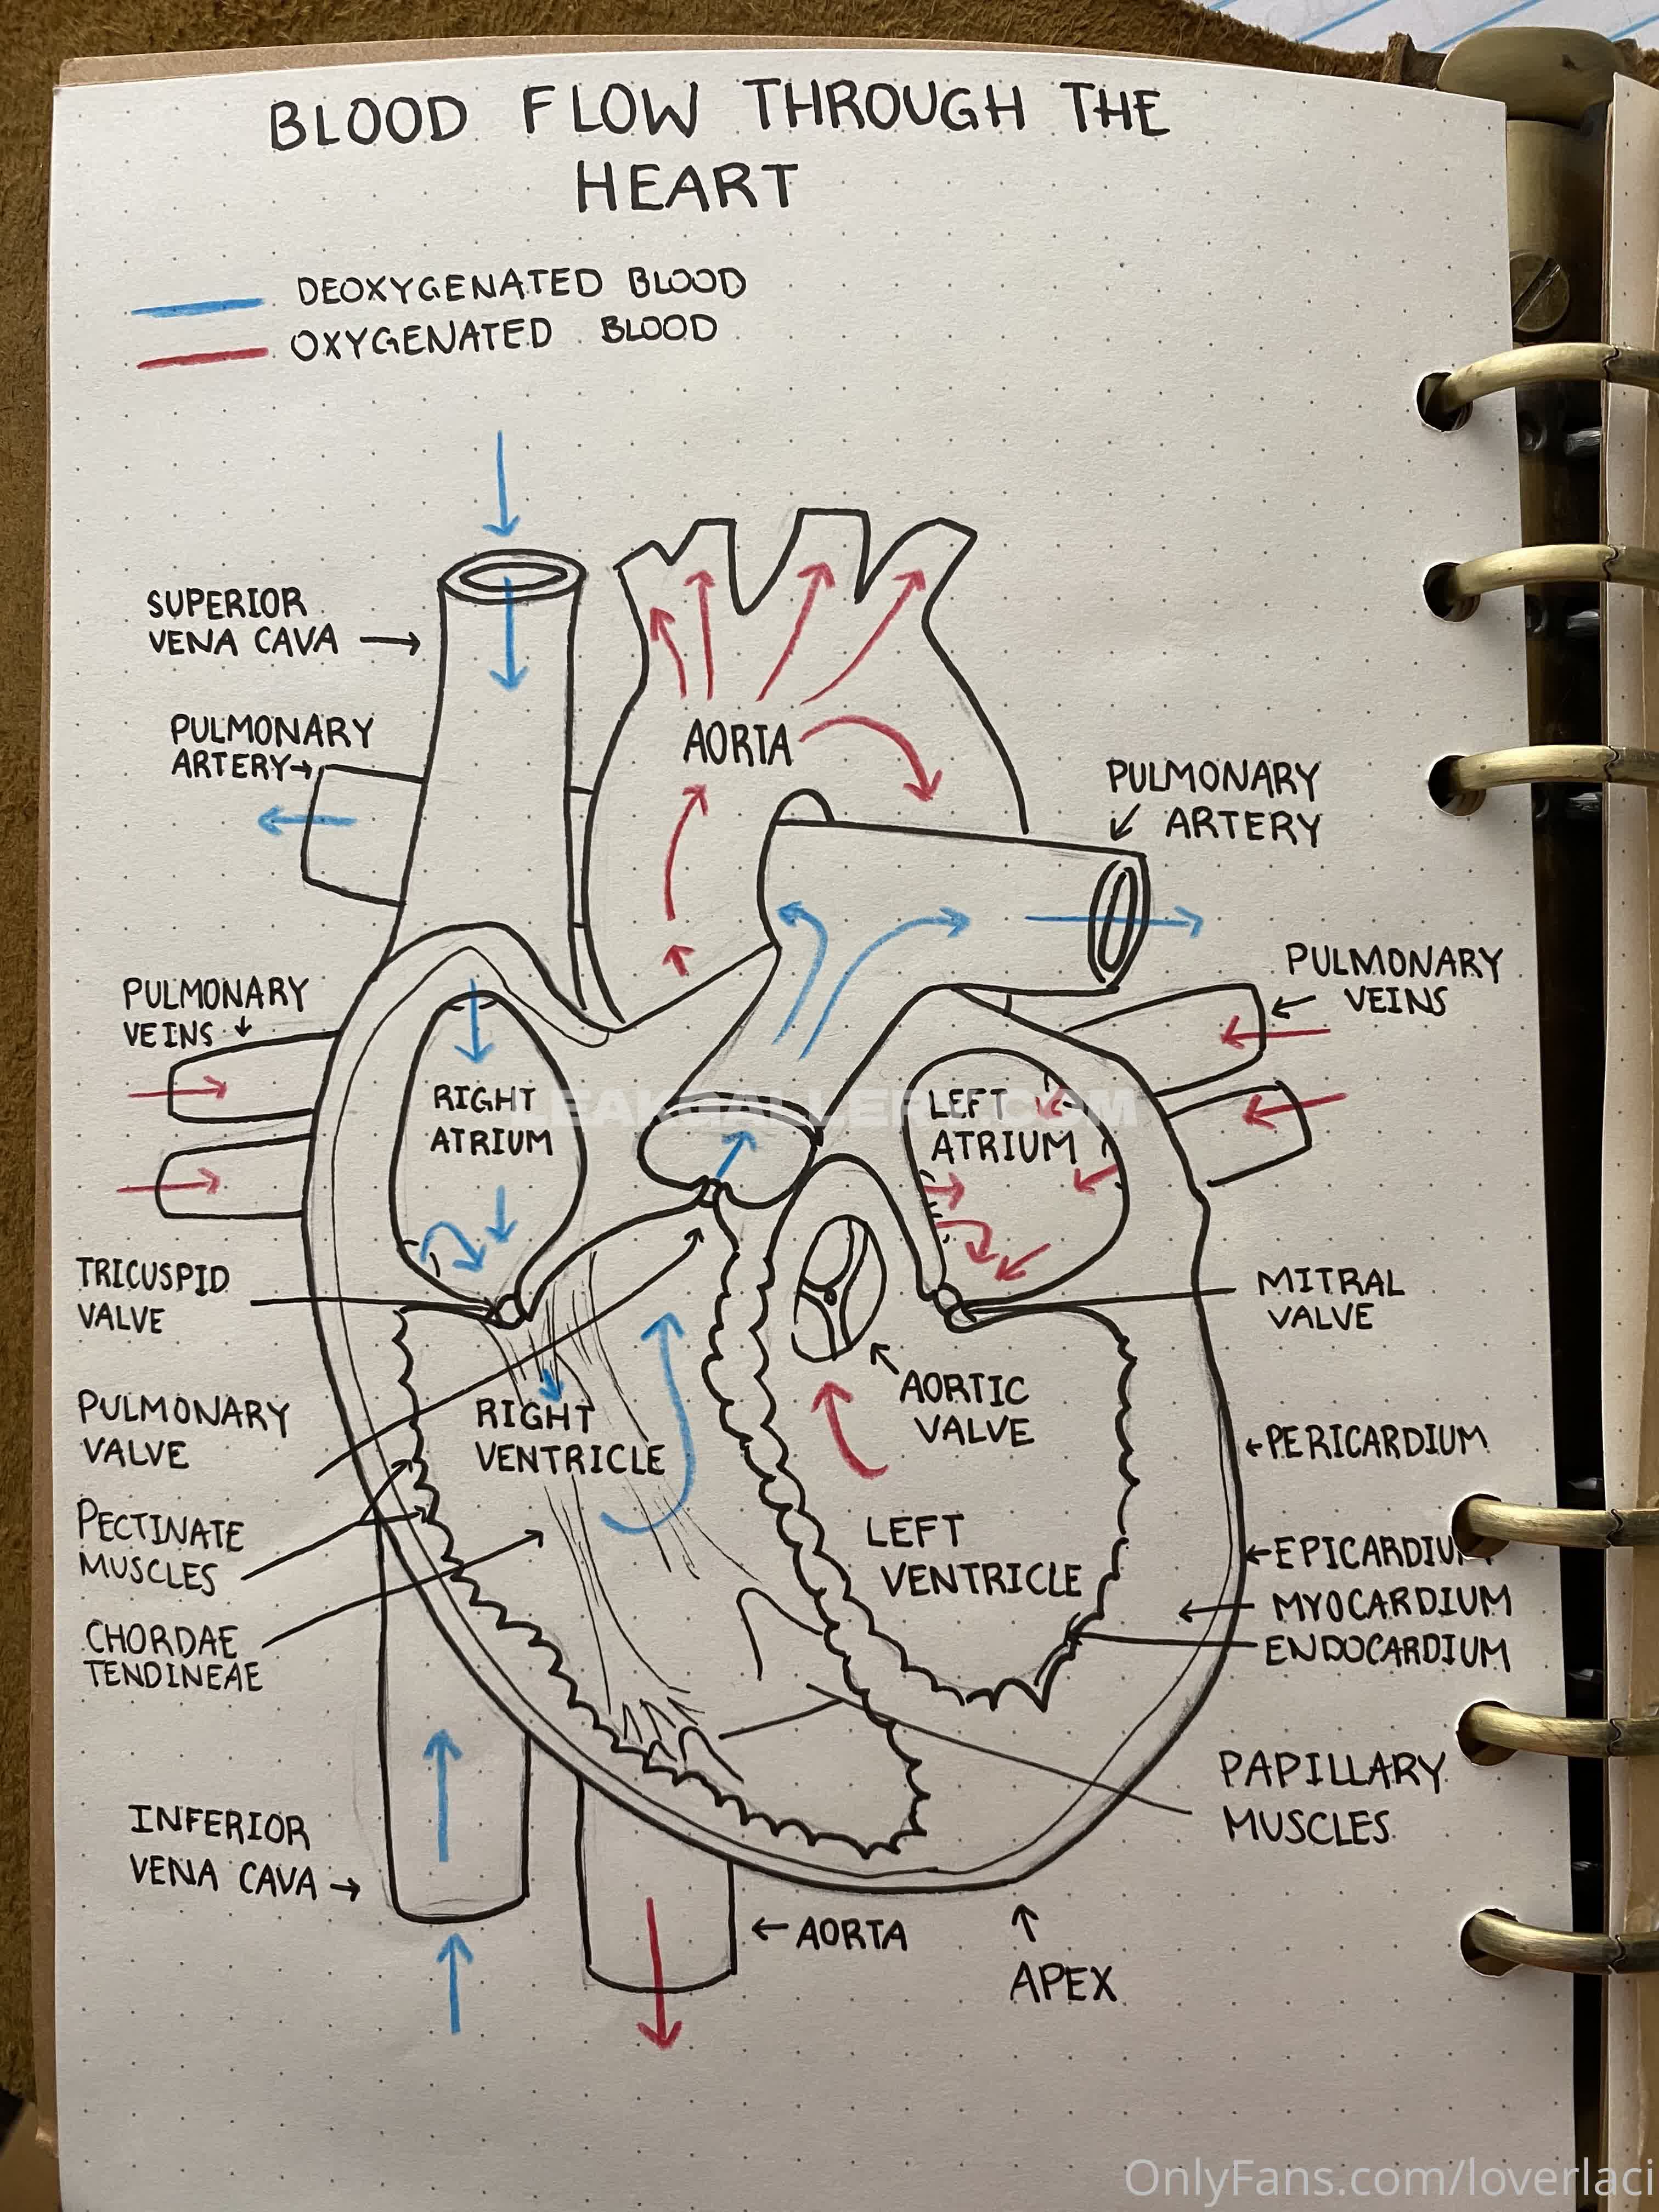 BLOOD FLOW THROUGH THE
HEART
DEOXYGENATED BLOOD
OXYGENATED BLOOD
SUPERIOR
VENA CAVA
PULMONARY
ARTERY
AORTA
PULMONARY
ARTERY
PULMONARY
VEINS
PULMONARY
VEINS
RIGHT
ATRIUM
LEFT
ATRIUM
LEAKGALLERY.COM
TRICUSPID
VALVE
MITRAL
VALVE
AORTIC
VALVE
PULMONARY
VALVE
RIGHT
VENTRICLE
PERICARDIUM
PECTINATE
MUSCLES
LEFT
VENTRICLE
EPICARDIUM
MYOCARDIUM
ENDOCARDIUM
CHORDAE
TENDINEAE
PAPILLARY
MUSCLES
INFERIOR
VENA CAVA
AORTA
APEX
OnlyFans.com/loverlaci